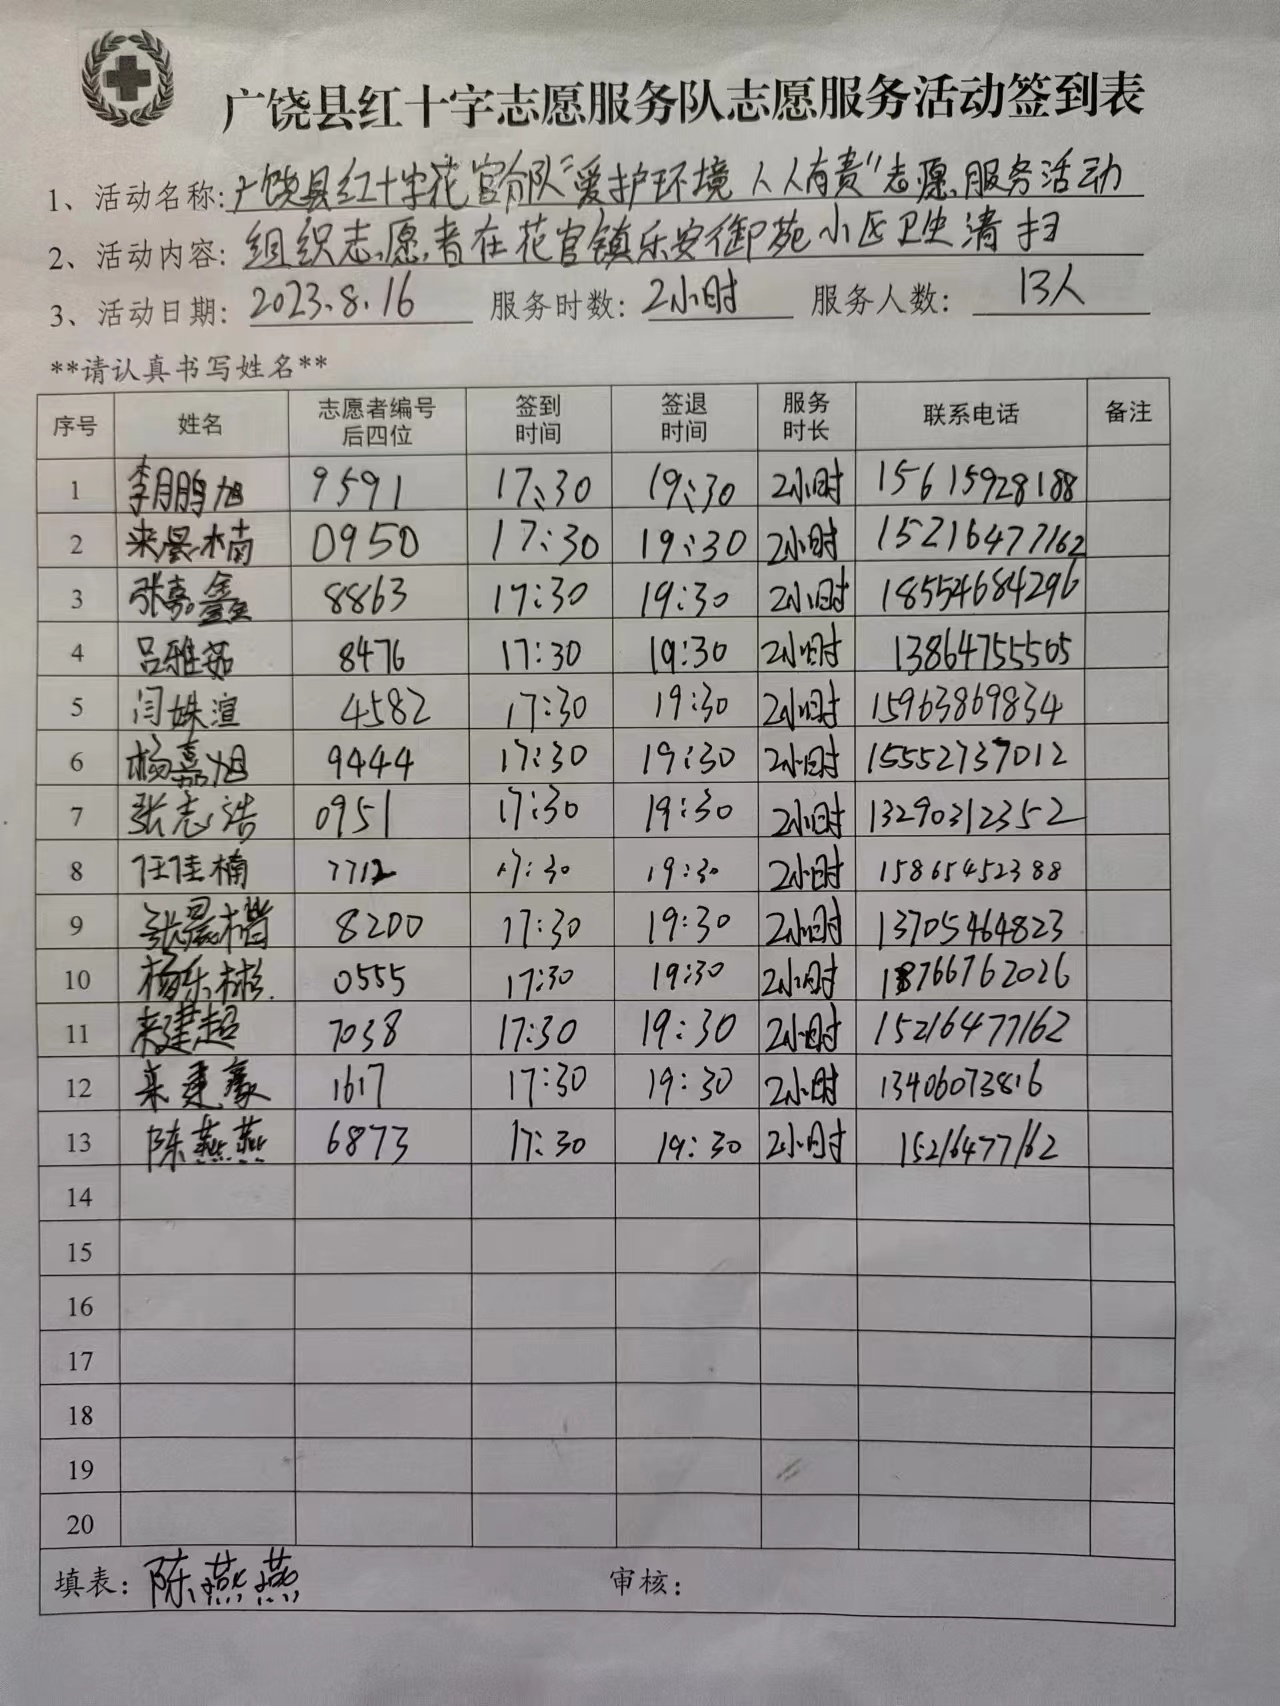 广饶县红十字志愿服务队志愿服务活动签到表
1、活动名称:广饶县红十字花官分队“爱护环境 人人有责”志愿服务活动
2、活动内容:组织志愿者在花官镇乐安御苑小区卫生清扫
3、活动日期: 2023.8.16 服务时数: 2小时 服务人数: 13人
**请认真书写姓名**
序号 姓名 志愿者编号后四位 签到时间 签退时间 服务时长 联系电话 备注
1 李鹏旭 9591 17:30 19:30 2小时 15615928188
2 来晏楠 0950 17:30 19:30 2小时 15216477162
3 张嘉鑫 8863 17:30 19:30 2小时 18554684296
4 吕雅茹 8476 17:30 19:30 2小时 13864755505
5 闫姝渲 4582 17:30 19:30 2小时 15963869834
6 杨嘉旭 9444 17:30 19:30 2小时 15552737012
7 张志浩 0951 17:30 19:30 2小时 13290312352
8 任佳楠 7712 17:30 19:30 2小时 15865452388
9 张晨楷 8200 17:30 19:30 2小时 13705464823
10 杨乐彬 0555 17:30 19:30 2小时 18766762026
11 来建超 7038 17:30 19:30 2小时 15216477162
12 来建豪 1617 17:30 19:30 2小时 13406073816
13 陈燕燕 6873 17:30 19:30 2小时 15216477162
14
15
16
17
18
19
20
填表: 陈燕燕 审核: